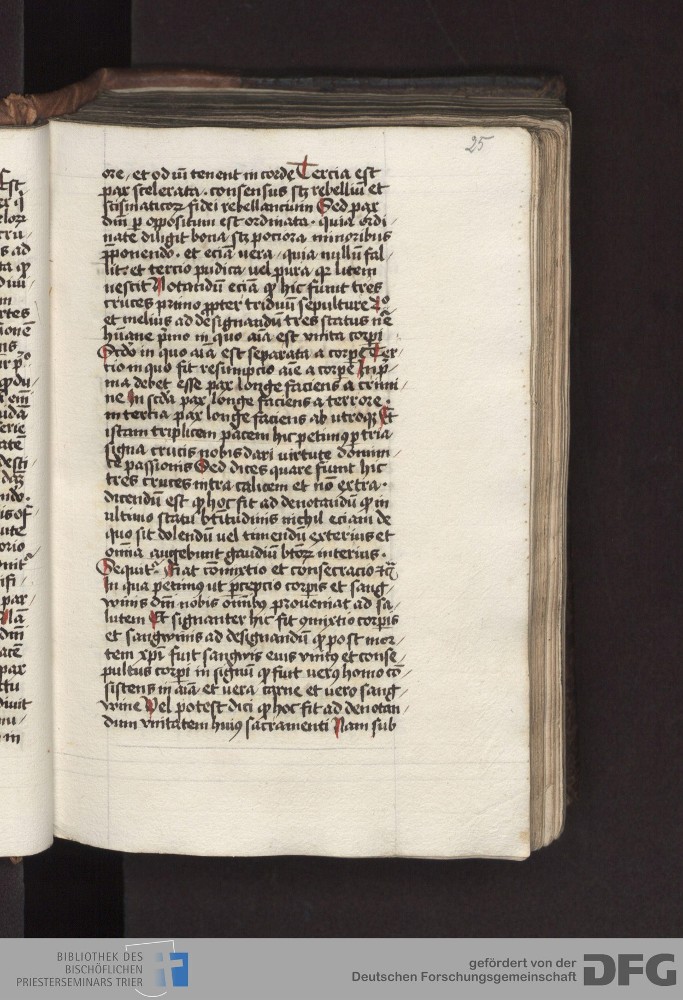 25
ore, et odiū tenent in corde Tercia est
pax scelerata. consensus scꝫ rebelliū et
scismaticoꝝ fidei rebellancium Sed pax
dīni ꝑ oppositum est ordinata. quia ordi
nate diligit bona scꝫ pociora minoribus
p̄ponendo. et eciā vera. quia nullū fal
lit. et tercio pudica vel pura qꝛ litem
nescit Notandū eciā ꝙ hic fiunt tres
cruces primo ꝓpter triduū sepulture 2º
et melius ad designandū tres status nr̄e
hūane p̄mo in quo aīa est vnita corpi
Scdo in quo aīa est separata a corpe Ter
tio in quo fit resumpcio aīe a corpe In p̄
ma debet esse pax longe faciens a crimi
ne In scda pax longe faciens a terrore.
in tertia pax longe faciens ab utroqꝫ Et
istam triplicem pacem hic petimꝰ ꝑ tria
signa crucis nobis dari virtute domini
ce passionis Sed dices quare fiunt hic
tres cruces intra calicem et nō extra.
dicendū est ꝙ hoc fit ad denotandū ꝙ in
ultimo statu btitudinis nichil eciam de
quo sit dolendū vel timendū exterius et
omīa augebunt gaudiū btoꝝ interius.
Sequitꝛ. Fiat cōmixtio et consecracio ⁊c̄
In qua petimꝰ ut ꝑcepcio corpis et sang
winis dīni nobis omībꝰ proueniat ad sa
lutem Et signanter hic fit ꝯmixtio corpis
et sangwinis ad designandū ꝙ post mor
tem xp̄i fuit sangwis eius vnitꝰ et conse
pultus corpi in signū ꝙ fuit verꝰ homo cō
sistens in aīa et vera carne et vero sang
wine Vel potest dici ꝙ hoc fit ad denotan
dum vnitatem huiꝰ sacramenti Nam sub
BIBLIOTHEK DES
BISCHÖFLICHEN
PRIESTERSEMINARS TRIER
gefördert von der
Deutschen Forschungsgemeinschaft
DFG